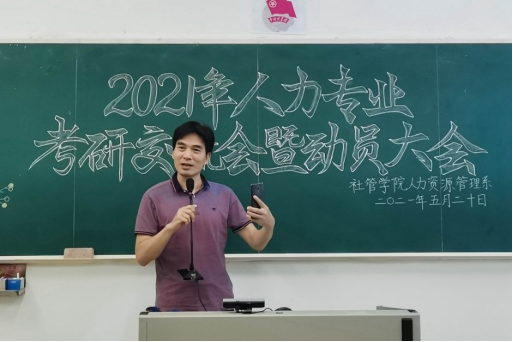 2021年人力专业
考研交流会暨动员大会
社管学院人力资源管理系
二〇二一年五月二十日